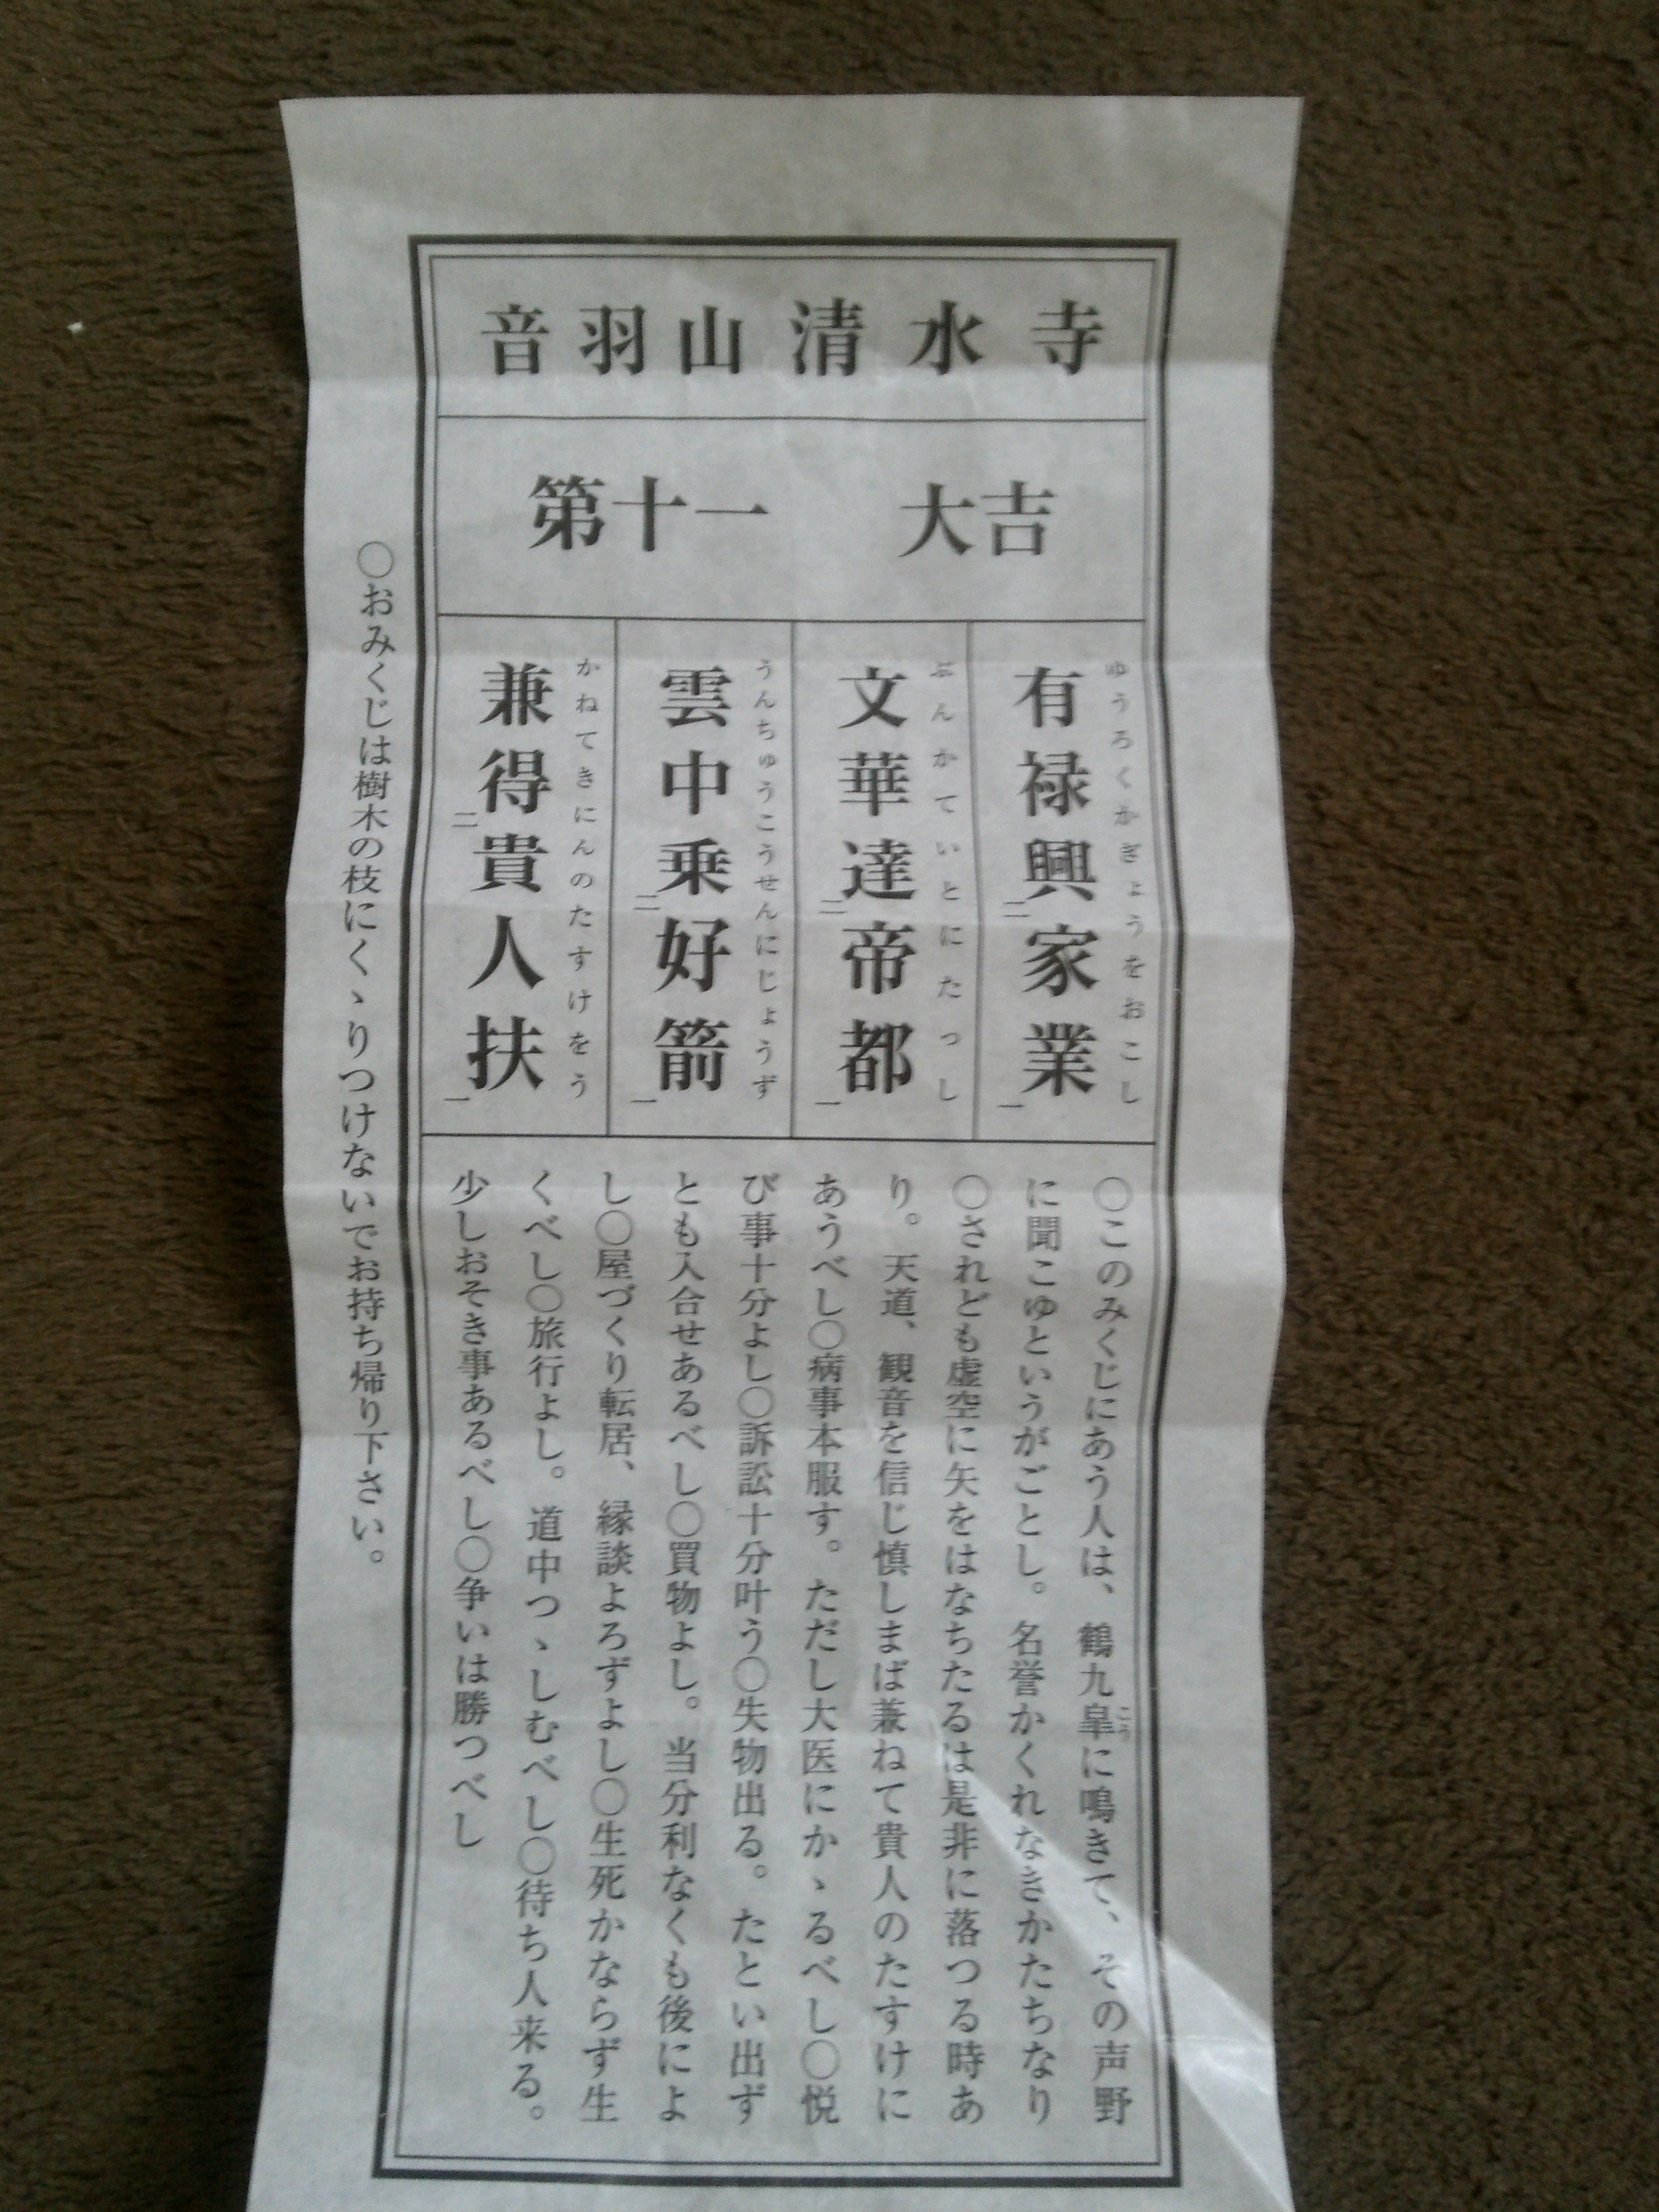 音羽山清水寺
第十一　大吉
ゆうろくかぎょうをおこし
有禄興二家業一
ぶんかていとにたっし
文華達二帝都一
うんちゅうこうせんにじょうず
雲中乗二好箭一
かねてきにんのたすけをう
兼得二貴人扶一
〇このみくじにあう人は、鶴九皐に鳴きて、その声野
こう
に聞こゆというがごとし。名誉かくれなきかたちなり
〇されども虚空に矢をはなちたるは是非に落つる時あ
り。天道、観音を信じ慎しまば兼ねて貴人のたすけに
あうべし〇病事本服す。ただし大医にかゝるべし〇悦
び事十分よし〇訴訟十分叶う〇失物出る。たとい出ず
とも入合せあるべし〇買物よし。当分利なくも後によ
し〇屋づくり転居、縁談よろずよし〇生死かならず生
くべし〇旅行よし。道中つゝしむべし〇待ち人来る。
少しおそき事あるべし〇争いは勝つべし
〇おみくじは樹木の枝にくゝりつけないでお持ち帰り下さい。